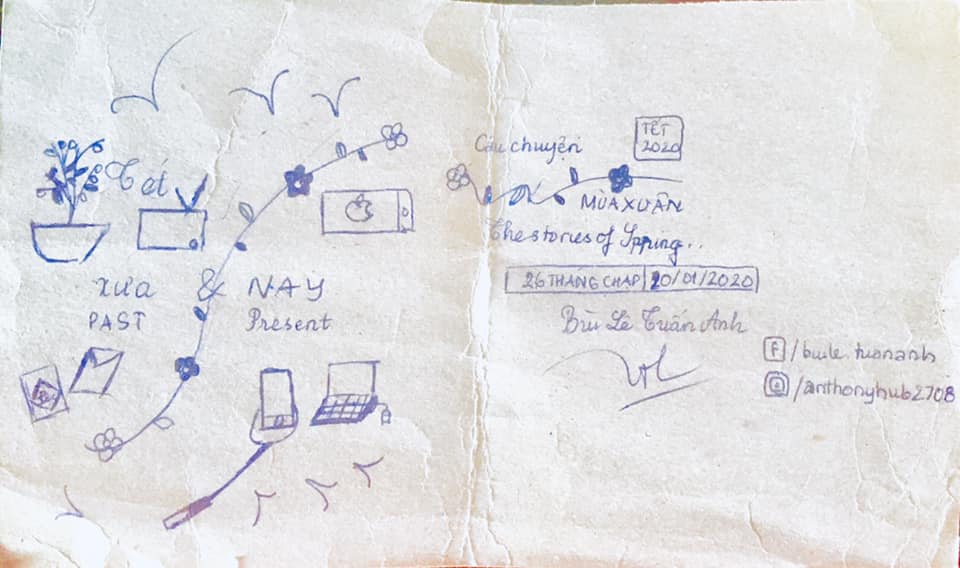 Tết
XƯA & NAY
PAST Present
Câu chuyện
TẾT
2020
MÙA XUÂN
The stories of Spping...
26 THÁNG CHẠP 20/01/2020
Bùi Lê Tuấn Anh
f/buile.tuananh
/anthonyhub2708